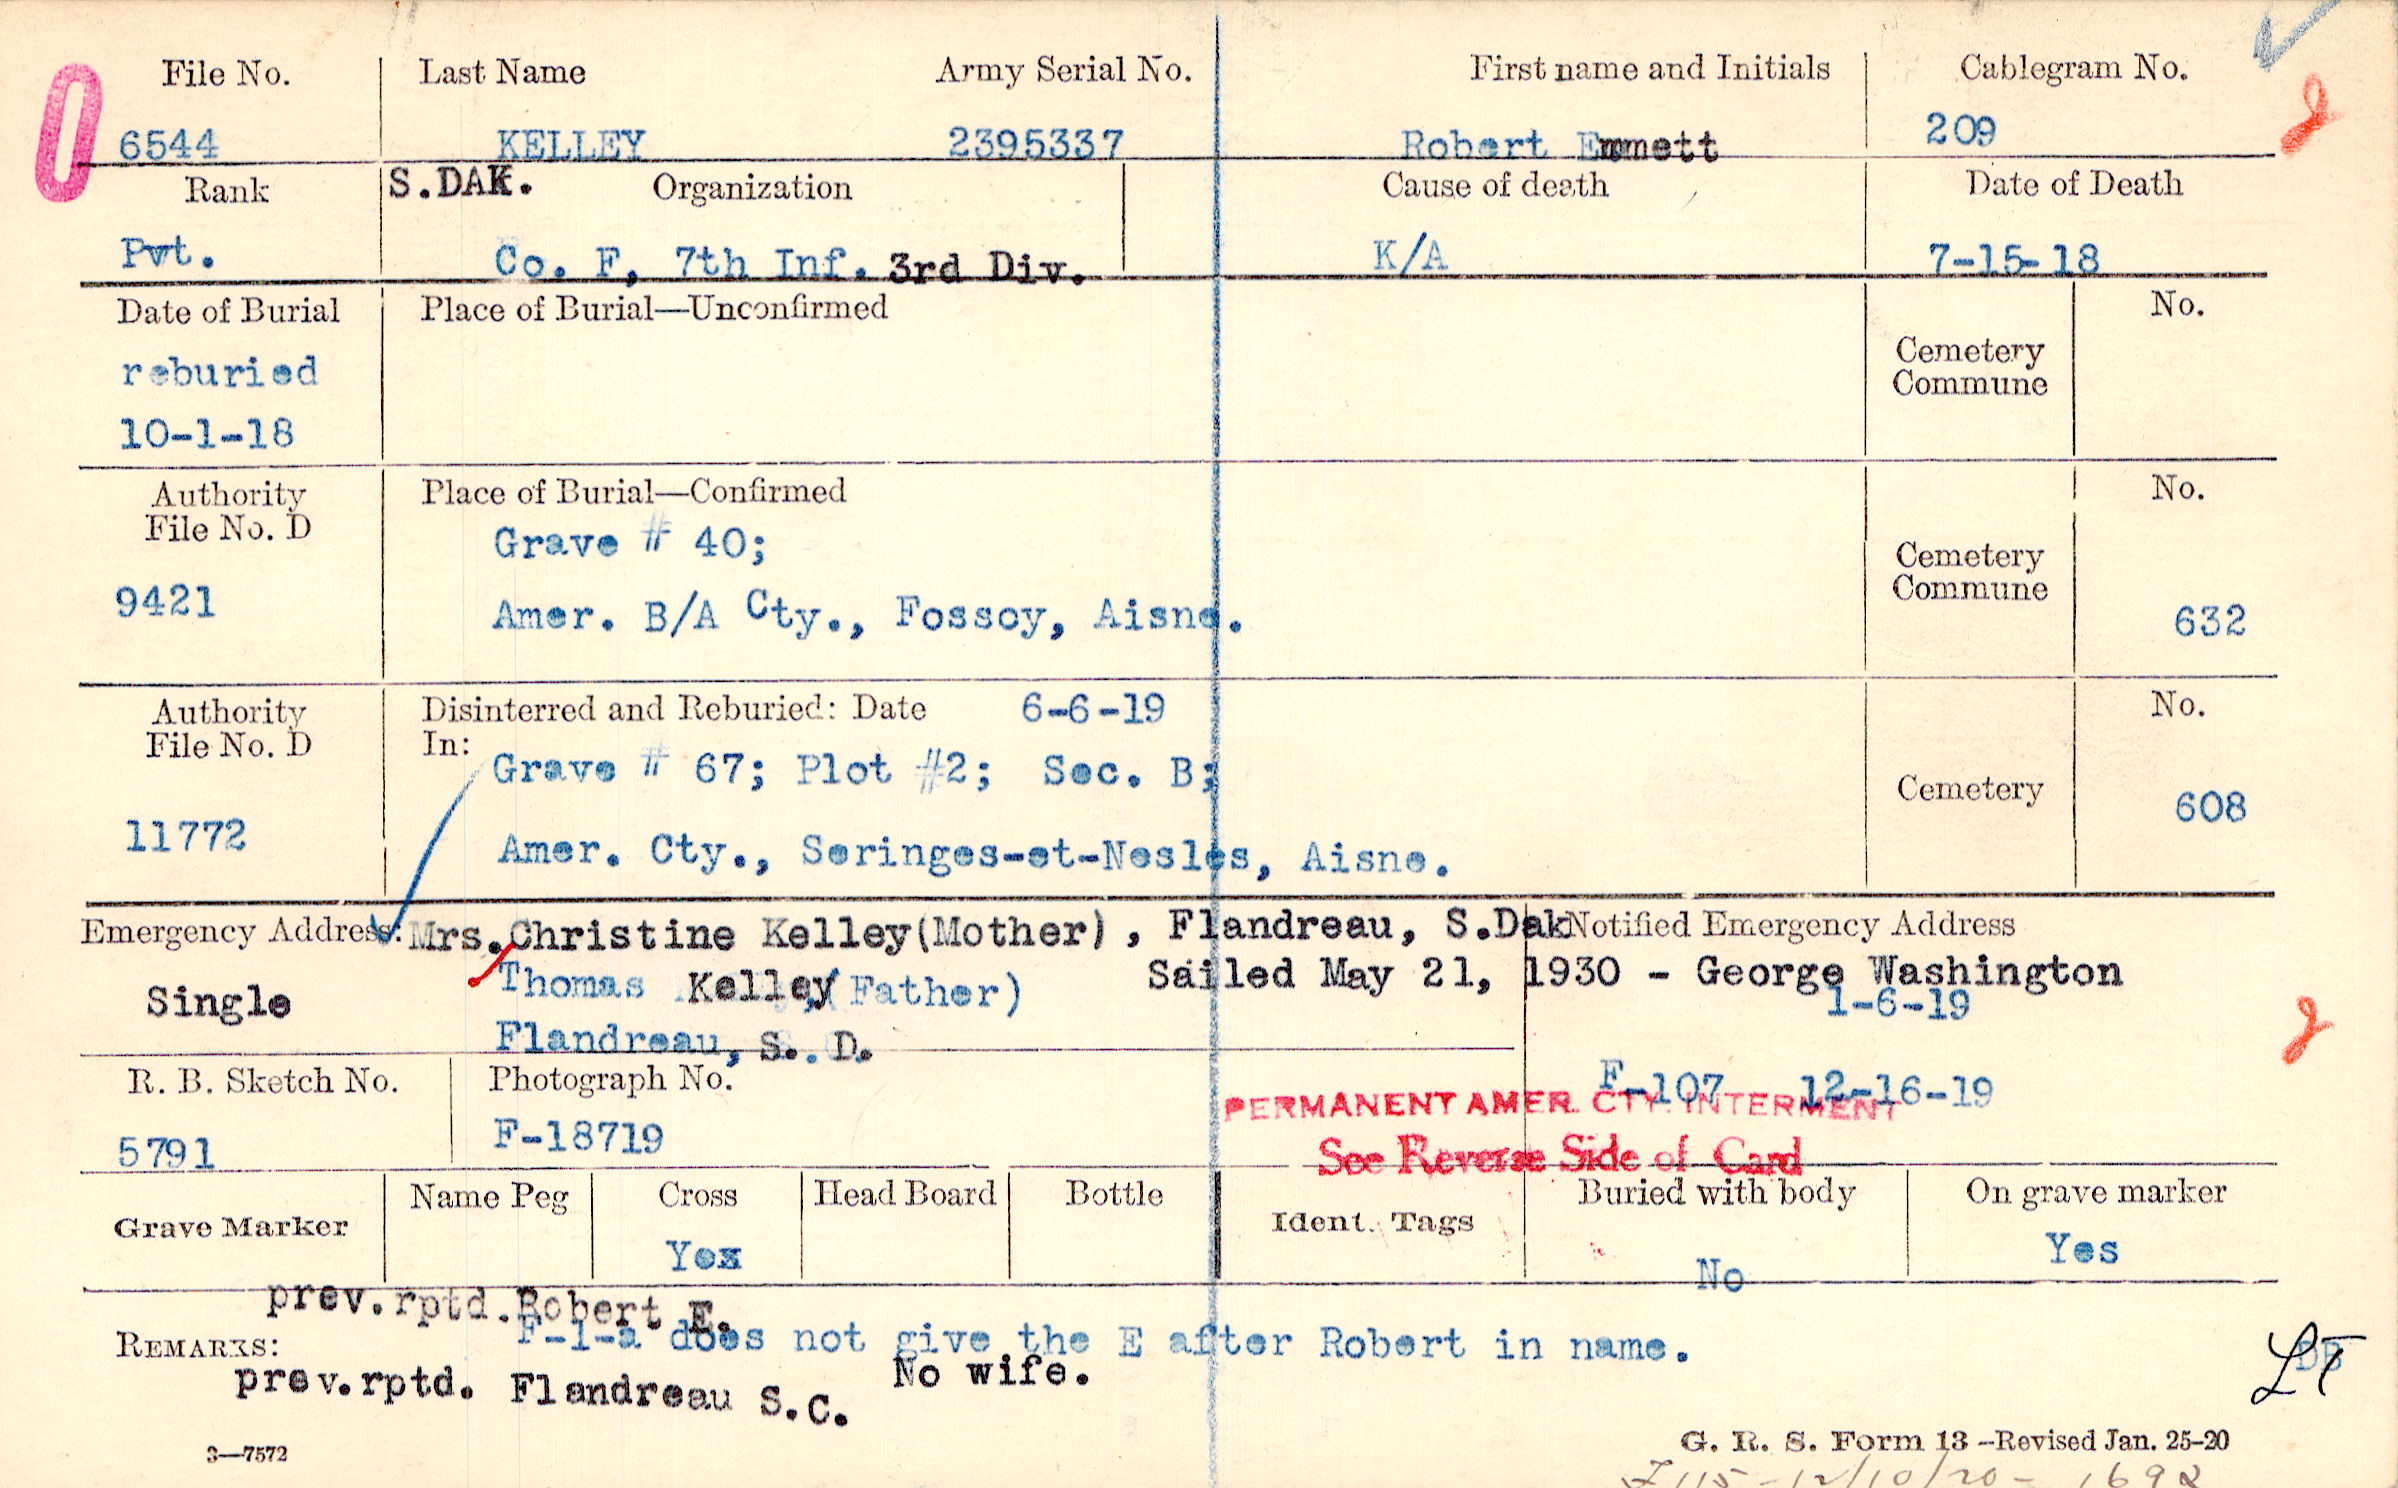 File No. Last Name Army Serial No. First name and Initials Cablegram No.
6544 KELLEY 2395337 Robert Emmett 209
Rank S.DAK. Organization Cause of death Date of Death
Pvt. Co. F, 7th Inf. 3rd Div. K/A 7-15-18
Date of Burial Place of Burial—Unconfirmed No.
reburied Cemetery
Commune
10-1-18
Authority Place of Burial—Confirmed No.
File No. D Grave # 40;
Cemetery
Commune
9421 Amer. B/A Cty., Fossoy, Aisne. 632
Authority Disinterred and Reburied: Date 6-6-19 No.
File No. D In: Grave # 67; Plot #2; Sec. B;
Cemetery 608
11772 Amer. Cty., Seringes-et-Nesles, Aisne.
Emergency Address: Mrs. Christine Kelley(Mother), Flandreau, S.Dak Notified Emergency Address
Single Thomas Kelley (Father) Sailed May 21, 1930 - George Washington
1-6-19
Flandreau, S. D.
R. B. Sketch No. Photograph No. F-107 12-16-19
PERMANENT AMER. CTY. INTERMENT
5791 F-18719 See Reverse Side of Card
Grave Marker Name Peg Cross Head Board Bottle Ident. Tags Buried with body On grave marker
Yes No Yes
prev.rptd.Robert E.
REMARKS: F-1-a does not give the E after Robert in name.
prev.rptd. Flandreau S.C. No wife.
3—7572 G. R. S. Form 13 -Revised Jan. 25-20
1692